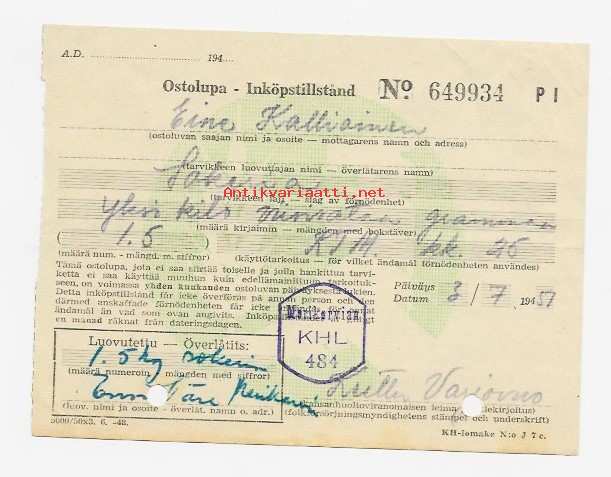 A.D. 194
Ostolupa - Inköpstillstånd No 649934 P I
Kallioinen
(ostoluvan saajan nimi ja osoite — mottagarens namn och adress)
(tarvikkeen luovuttajan nimi — överlåtarens namn)
Antikvariaatti.net
(tarvikkeen laji — slag av förnödenhet)
yksi kilo
(määrä kirjaimin — mängden med bokstäver)
1.5 kk. 25
(määrä num. - mängd. m. siffror) (käyttötarkoitus — för vilket ändamål förnödenheten användes)
Tämä ostolupa, jota ei saa siirtää toiselle ja jolla hankittua tarvi-
ketta ei saa käyttää muuhun kuin edellämainittuun tarkoituk-
seen, on voimassa yhden kuukauden ostoluvan päiväyksestä lukien.
Detta inköpstillstånd får icke överföras på annan person och den
därmed anskaffade förnödenheten får icke
ändamål än vad som ovan angivits. Inköps
en månad räknat från dateringsdagen.
Päiväys
Datum 3/7 1951
KHL
484
Luovutettu — Överlåtits:
1.5 kg
(määrä numeroin — mängden med siffror)
(luov. nimi ja osoite - överlåt. namn o. adr.)
kansanhuoltoviranomaisen leima allekirjoitus)
(folkförsörjningsmyndighetens stämpel och underskrift)
5000/50x3. 6. -48.
KH-lomake N:o J 7 c.